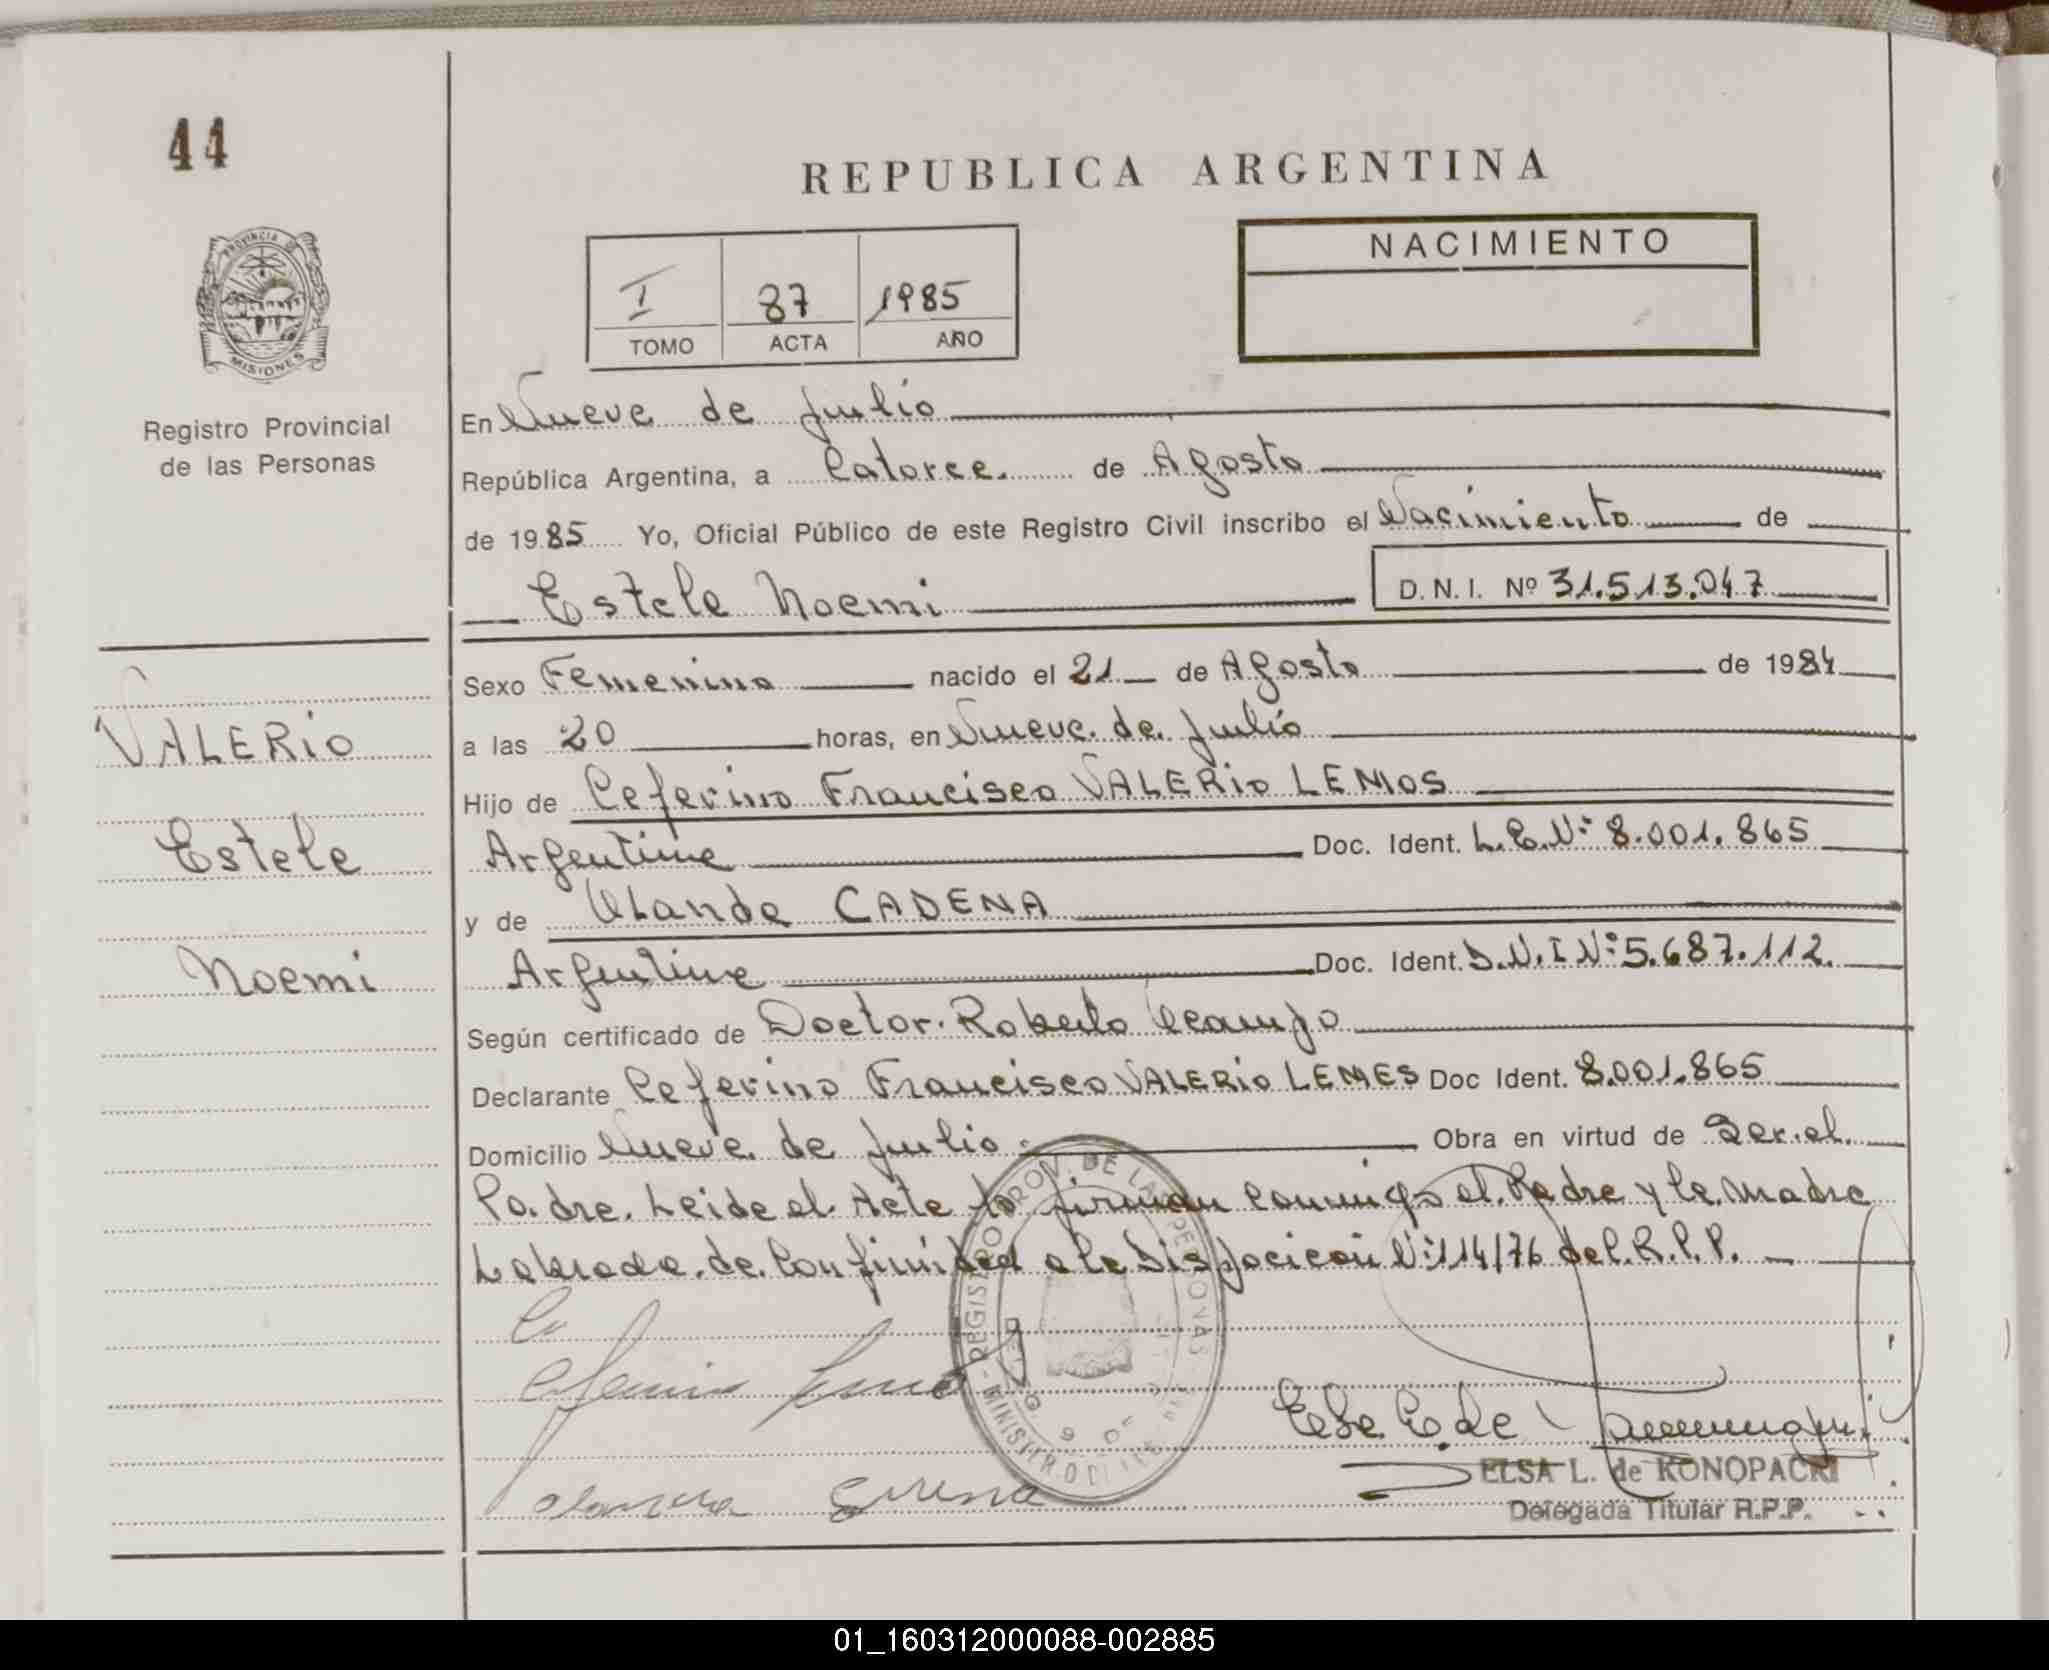 44
REPUBLICA ARGENTINA
PROVINCIA DE
MISIONES
Registro Provincial
de las Personas
I 87 1985
TOMO ACTA AÑO
NACIMIENTO
En Nueve de Julio
República Argentina, a Catorce. de Agosto
de 1985 Yo, Oficial Público de este Registro Civil inscribo el Nacimiento de
Estela Noemi D.N.I. Nº 31.513.047
Sexo Femenino nacido el 21 de Agosto de 1984
VALERIO
a las 20 horas, en Nueve de Julio
Hijo de Ceferino Francisco VALERIO LEMOS
Estela
Argentina Doc. Ident. L.E.Nº 8.001.865
y de CADENA
Noemi
Argentina Doc. Ident. D.N.I Nº 5.687.112.
Según certificado de Doctor. Roberto Ocampo
Declarante Ceferino Francisco VALERIO LEMES Doc Ident. 8.001.865
Domicilio Nueve de Julio. Obra en virtud de Ser el
Padre. Leida el Acta la firman conmigo el Padre y la Madre
Labrada de a la Nº 114/76 del R.P.P.
REGISTRO PROV. DE LAS PERSONAS
ELSA L. de KONOPACKI
Delegada Titular R.P.P.
01_160312000088-002885